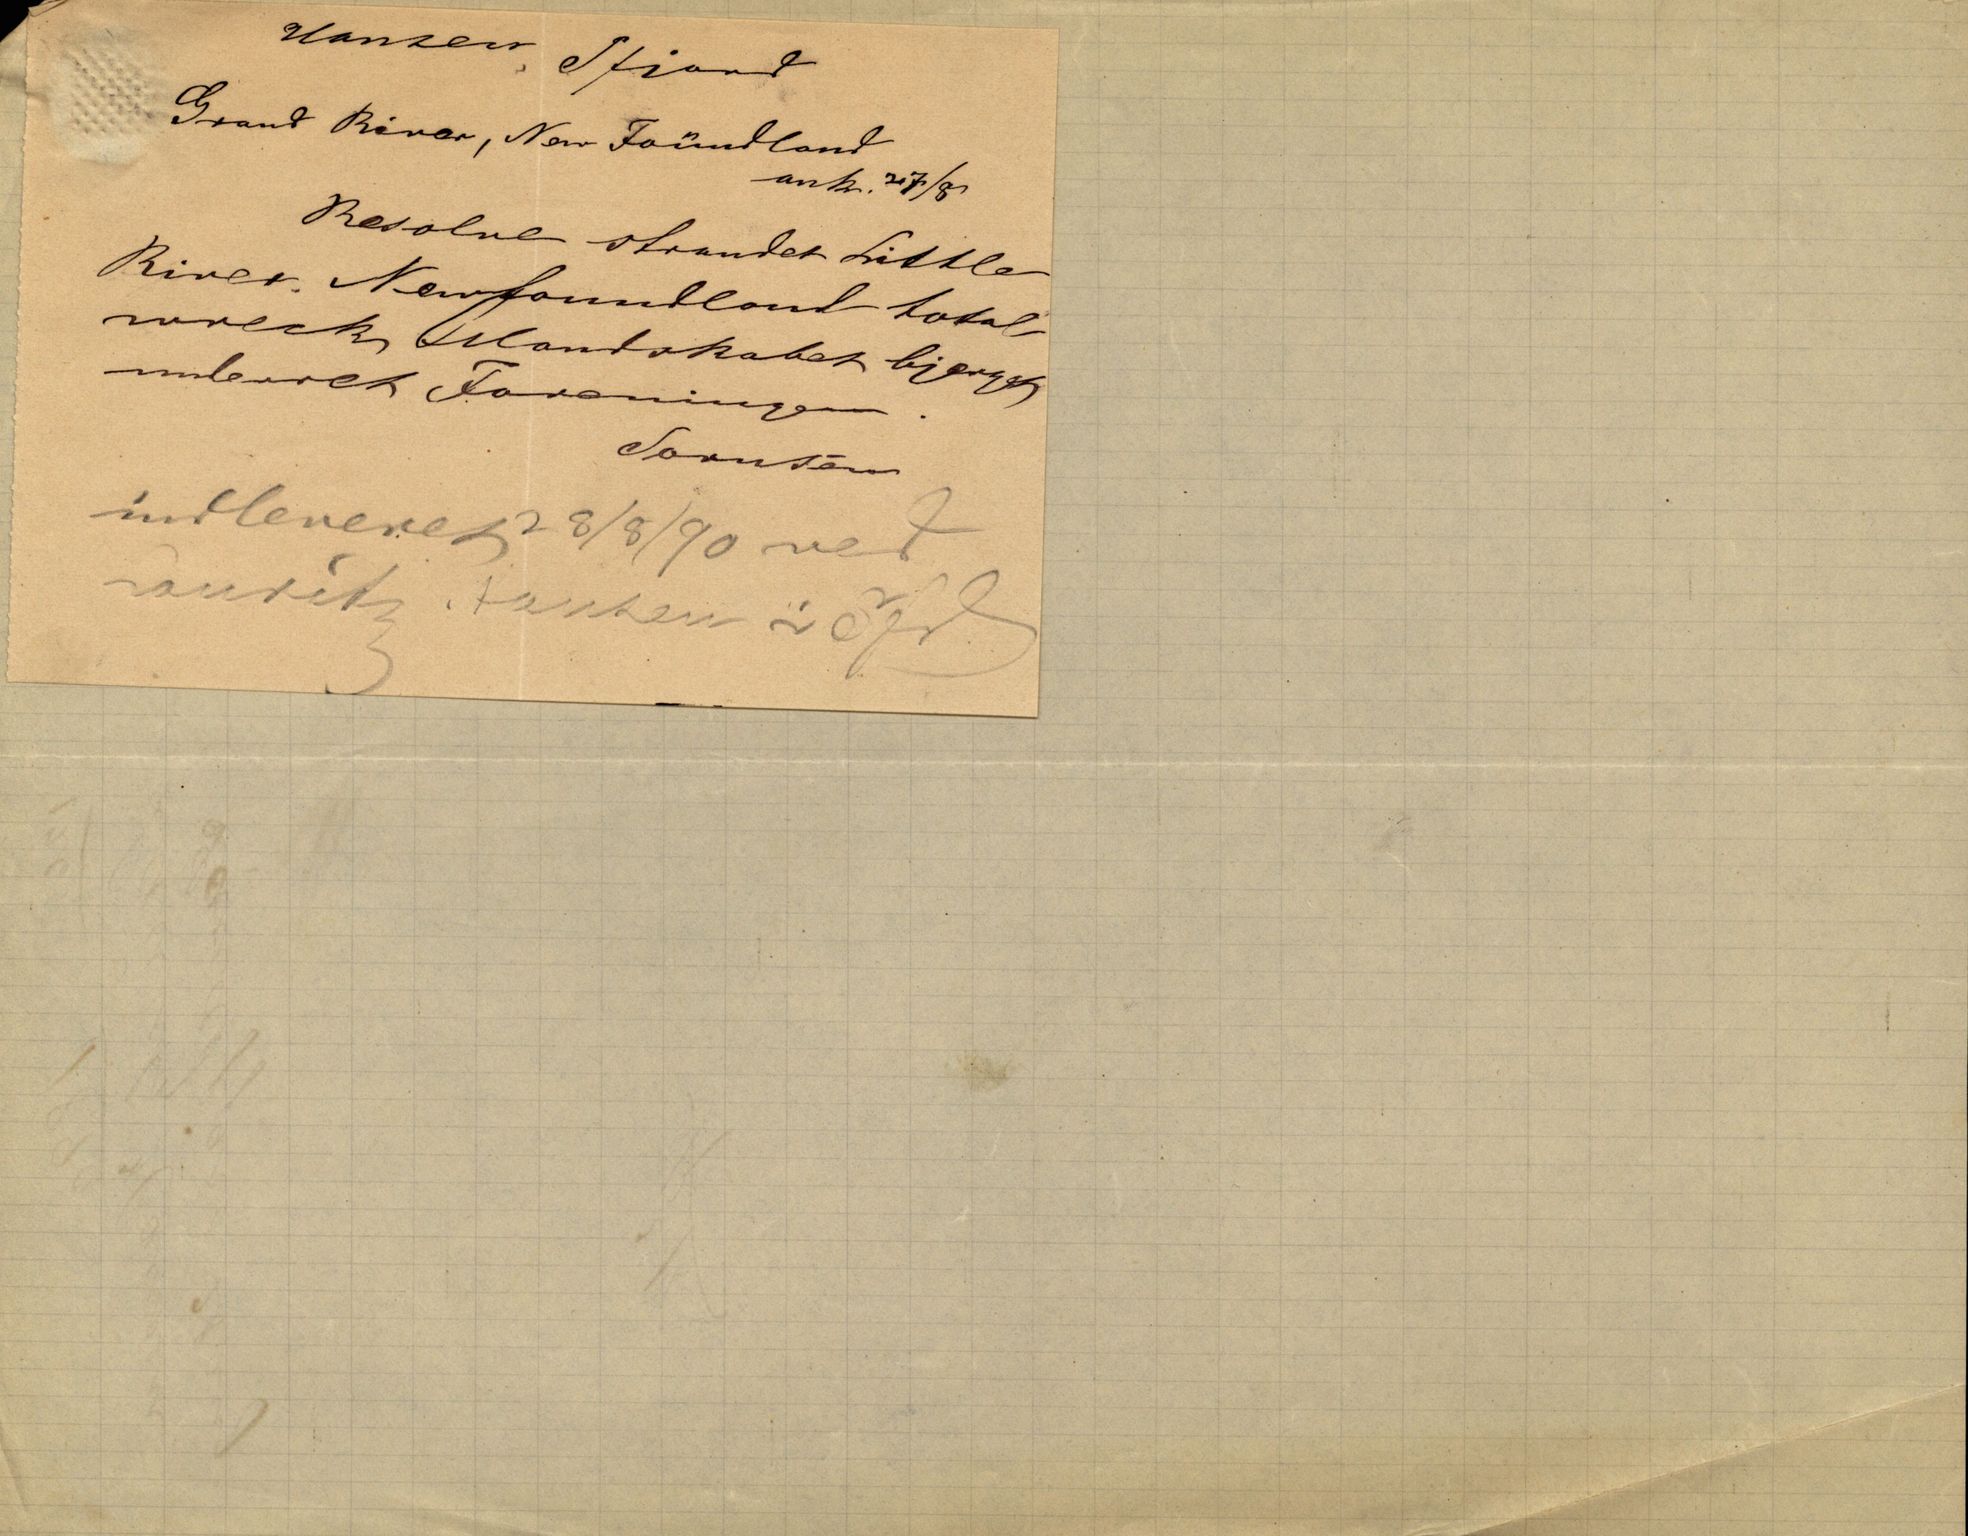 Hansen, Tfjord
Grand River, New Foundland
ank. 27/8
Resolve strandet Little
River. Newfoundland total
wreck, Mandskabet bjerget,
underret Foreningen.
Sorensen
indleveret 28/8/90 ved
Lauritz Hansen i Tfjd.